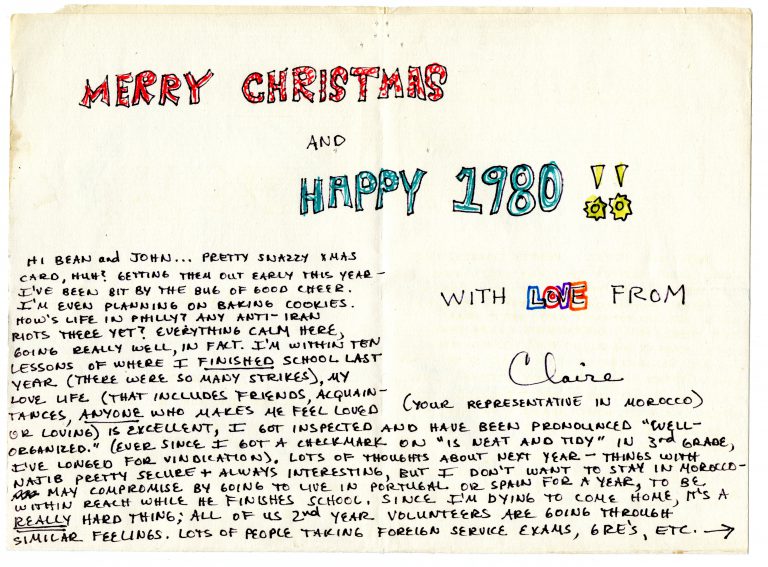 MERRY CHRISTMAS
AND
HAPPY 1980 !!
HI BEAN and JOHN... PRETTY SNAZZY XMAS
CARD, HUH? GETTING THEM OUT EARLY THIS YEAR-
I'VE BEEN BIT BY THE BUG OF GOOD CHEER.
I'M EVEN PLANNING ON BAKING COOKIES.
HOW'S LIFE IN PHILLY? ANY ANTI-IRAN
RIOTS THERE YET? EVERYTHING CALM HERE,
GOING REALLY WELL, IN FACT. I'M WITHIN TEN
LESSONS OF WHERE I FINISHED SCHOOL LAST
YEAR (THERE WERE SO MANY STRIKES), MY
LOVE LIFE (THAT INCLUDES FRIENDS, ACQUAIN-
TANCES, ANYONE WHO MAKES ME FEEL LOVED
OR LOVING) IS EXCELLENT, I GOT INSPECTED AND HAVE BEEN PRONOUNCED "WELL-
ORGANIZED." (EVER SINCE I GOT A CHECKMARK ON "IS NEAT AND TIDY" IN 3rd GRADE,
I'VE LONGED FOR VINDICATION). LOTS OF THOUGHTS ABOUT NEXT YEAR - THINGS WITH
NAJIB PRETTY SECURE + ALWAYS INTERESTING, BUT I DON'T WANT TO STAY IN MOROCCO-
MAY COMPROMISE BY GOING TO LIVE IN PORTUGAL OR SPAIN FOR A YEAR, TO BE
WITHIN REACH WHILE HE FINISHES SCHOOL. SINCE I'M DYING TO COME HOME, IT'S A
REALLY HARD THING; ALL OF US 2nd YEAR VOLUNTEERS ARE GOING THROUGH
SIMILAR FEELINGS. LOTS OF PEOPLE TAKING FOREIGN SERVICE EXAMS, GRE'S, ETC. →
WITH LOVE FROM
Claire
(YOUR REPRESENTATIVE IN MOROCCO)